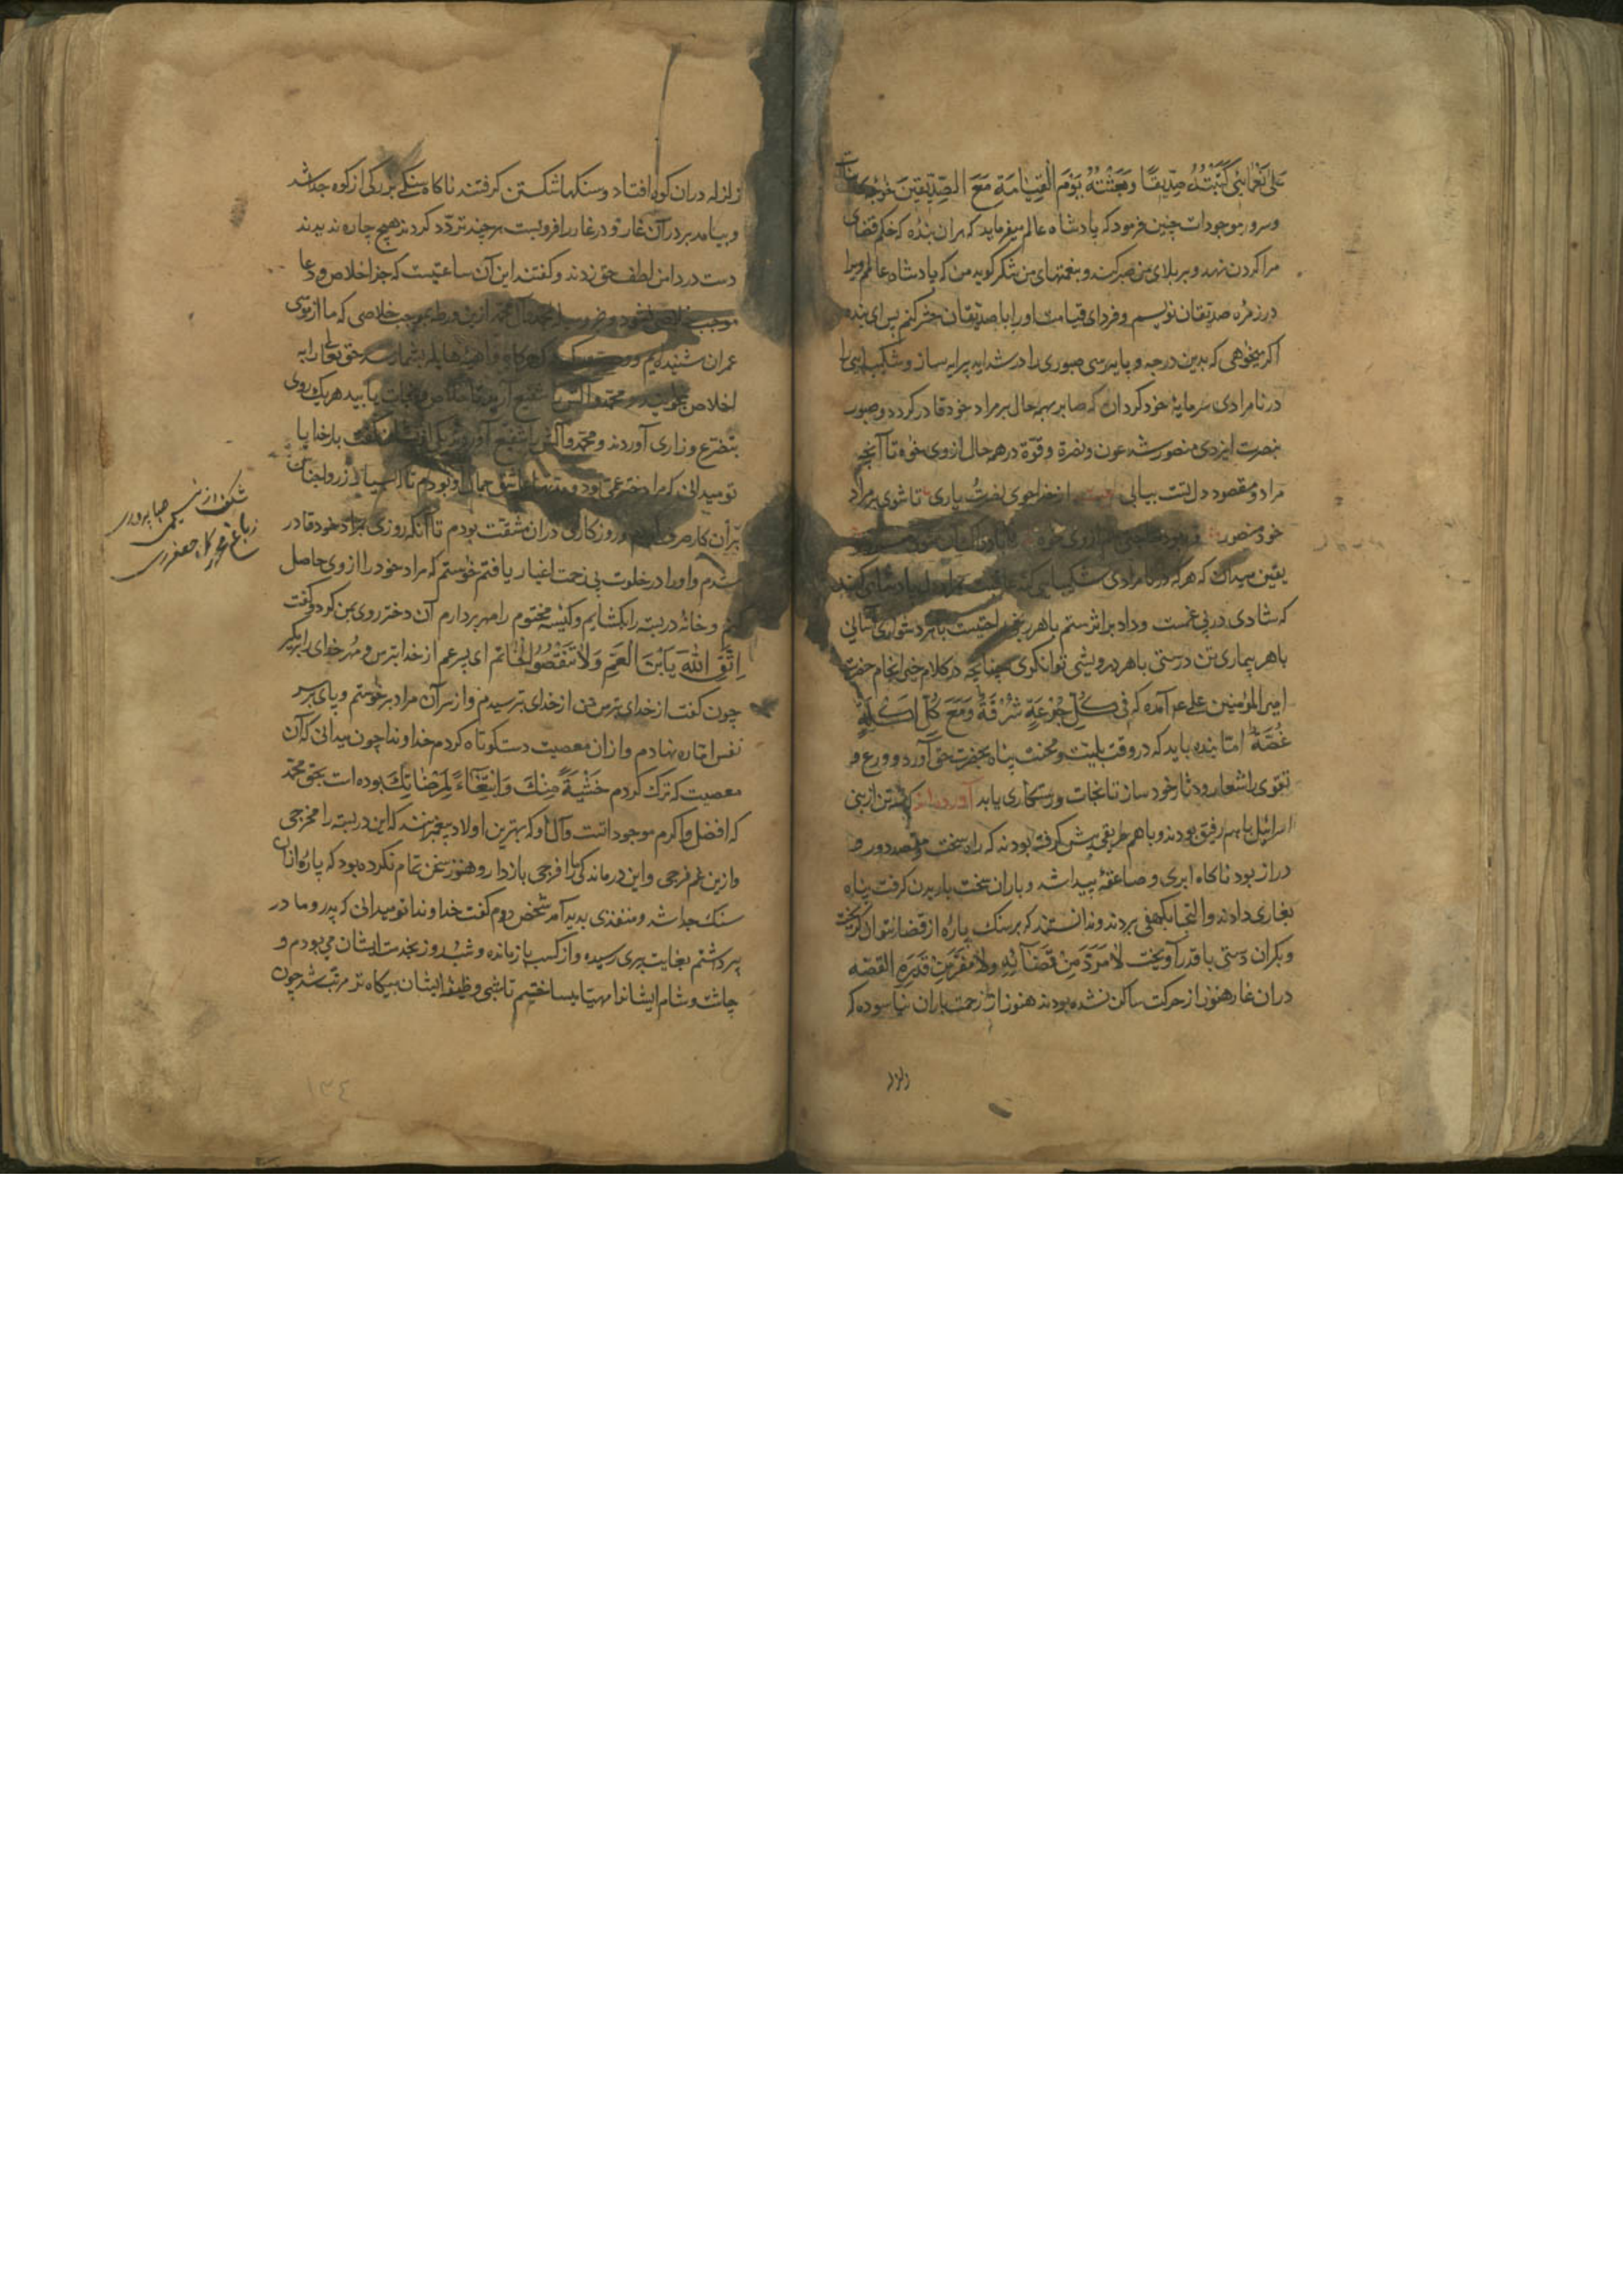 علی نعمائی کتبته صدیقا و بعثته یوم القیامة مع الصدیقین خواجه کاینات
و سرور موجودات چنین فرمود که پادشاه عالم میفرماید که هران بنده که حکم قضای
مرا کردن نهد و بر بلای من صبر کند و بنعمتهای من شکر کوید من که پادشاه عالمم ویرا
در زمره صدیقان نویسم و فردای قیامت اورا با صدیقان حشر کنم پس ای بنده
اکر میخواهی که بدین درجه و پایه رسی صبوری را در شداید پیرایه ساز و شکیبایی را
در نامرادی سرمایهٔ خود کردان که صابر بهمه حال بر مراد خود قادر کردد و صبور
بنصرت ایزدی منصور شد عون و نصرة و قوّة در هر حال از وی خواه تا آنچه
مراد و مقصود دل تست بیابی از خدا جوی نصرت و یاری تا شوی بر مراد
خود منصور
یقین میدان که هر که در نامرادی شکیبایی کند عاقبت بمراد دل پادشاهی کند
که شادی در پی غمست و داد بر اثر ستم با هر رنجی راحتیست با هر دشواری آسانی
با هر بیماری تن درستی با هر درویشی توانکری چنانچه در کلام خیر انجام حضرت
امیر المؤمنین علی ع م آمده که فی کل جرعة شرقة و مع کل اکلة
غصّة امّا بنده باید که در وقت بلیّت و محنت پناه بحضرت حق آورد و ورع و
تقوی را شعار و دثار خود سازد تا نجات و رستکاری یابد آورده‌اند که سه تن از بنی
اسرائیل با هم رفیق بودند و با هم طریقی پیش کرفته بودند که راه سخت و مقصد دور و
دراز بود ناکاه ابری و صاعقهٔ پیدا شد و باران سخت باریدن کرفت پناه
بغاری دادند و التجا بکهفی بردند و ندانستند که بر سنک پاره از قضا نتوان کریخت
و بکران دستی با قدر آویخت لا مردّ من قضائه و لا مفرّ من قدره القصّه
دران غار هنوز از حرکت ساکن نشده بودند هنوز از زحمت باران نیاسوده که
زلزله
زلزله دران کوه افتاد و سنکها شکستن کرفتند ناکاه سنکی بزرکی از کوه جدا شد
و بیامد بر در آن غار و در غار را فرو بست هر چند تردّد کردند هیچ چاره ندیدند
دست در دامن لطف حق زدند و کفتند این آن ساعتیست که جز اخلاص و دعا
موجب خلاص نشود و جز وسیلهٔ محمد و آل محمد ازین ورطه موجب خلاصی که ما از موسی
عمران شنیده‌ایم حق تعالی را به
اخلاص بخوانید و محمد و آلش را شفیع آرید تا خلاص و نجات یابید هر یک روی
بتضرّع و زاری آوردند و محمد و آلش را شفیع آوردند یکی از ایشان کفت بار خدایا
تو میدانی که مرا دختر عمی بود و مدتها عاشق جمال او بودم
بر آن کار صرف کردم و روزکاری دران مشقّت بودم تا آنکه روزی بمراد خود قادر
شدم و اورا در خلوت بی زحمت اغیار یافتم خواستم که مراد خود را از وی حاصل
کنم و خانهٔ در بسته را بکشایم و کیسهٔ مختوم را مهر بردارم آن دختر روی بمن کرد و کفت
اتّق الله یا بن العمّ و لا تنقض الخاتم ای پسر عم از خدا بترس و مهر خدای را برمکیر
چون کفت از خدای بترس من از خدای بترسیدم و از سر آن مراد برخواستم و پای بر سر
نفس امّاره نهادم و ازان معصیت دست کوتاه کردم خداوندا چون میدانی که آن
معصیت که ترک کردم خشیة منک و ابتغاء لمرضاتک بوده است بحق محمد
که افضل و اکرم موجوداتست و آل او که بهترین اولاد پیغمبرنند که این در بسته را مخرجی
و ازین غم فرجی و این درماندکی را فرجی باز دار و هنوز سخن تمام نکرده بود که پارهٔ ازان
سنک جدا شد و منفذی پدید آمد شخص دوم کفت خداوندا تو میدانی که پدر و مادر
پیر داشتم بغایت پیری رسیده و از کسب باز مانده و شب و روز بخدمت ایشان می بودم و
چاشت و شام ایشانرا مهیّا میساختم تا شبی وظیفهٔ ایشان بیکاه تر مرتّب شد چون
۱۳٤